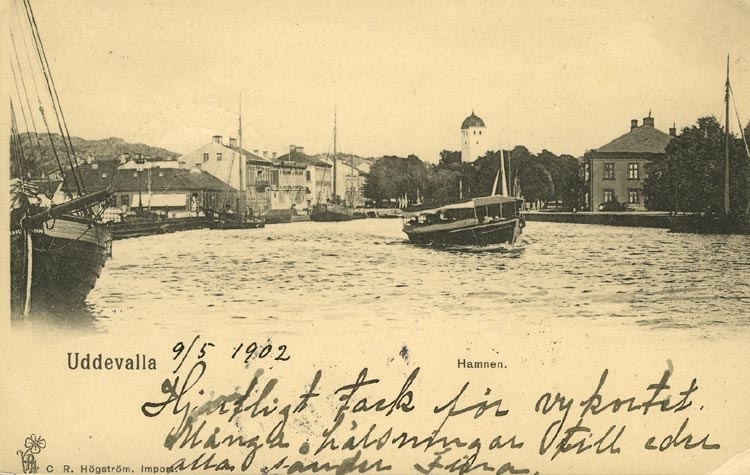 Uddevalla 9/5 1902 Hamnen.
Hjertligt tack för vykortet.
Många hälsningar till eder
alla sänder
C R. Högström. Import.